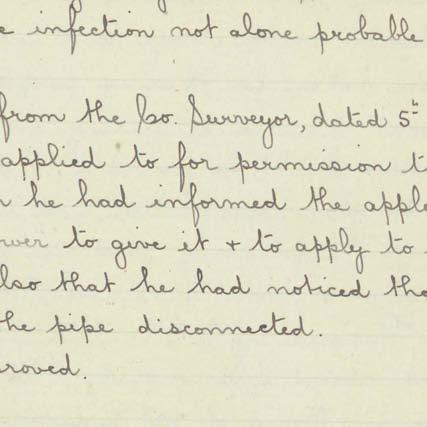 e infection not alone probable
from the Co. Surveyor, dated 5th
applied to for permission t
he had informed the appl
wer to give it + to apply to
lso that he had noticed tha
the pipe disconnected.
roved.